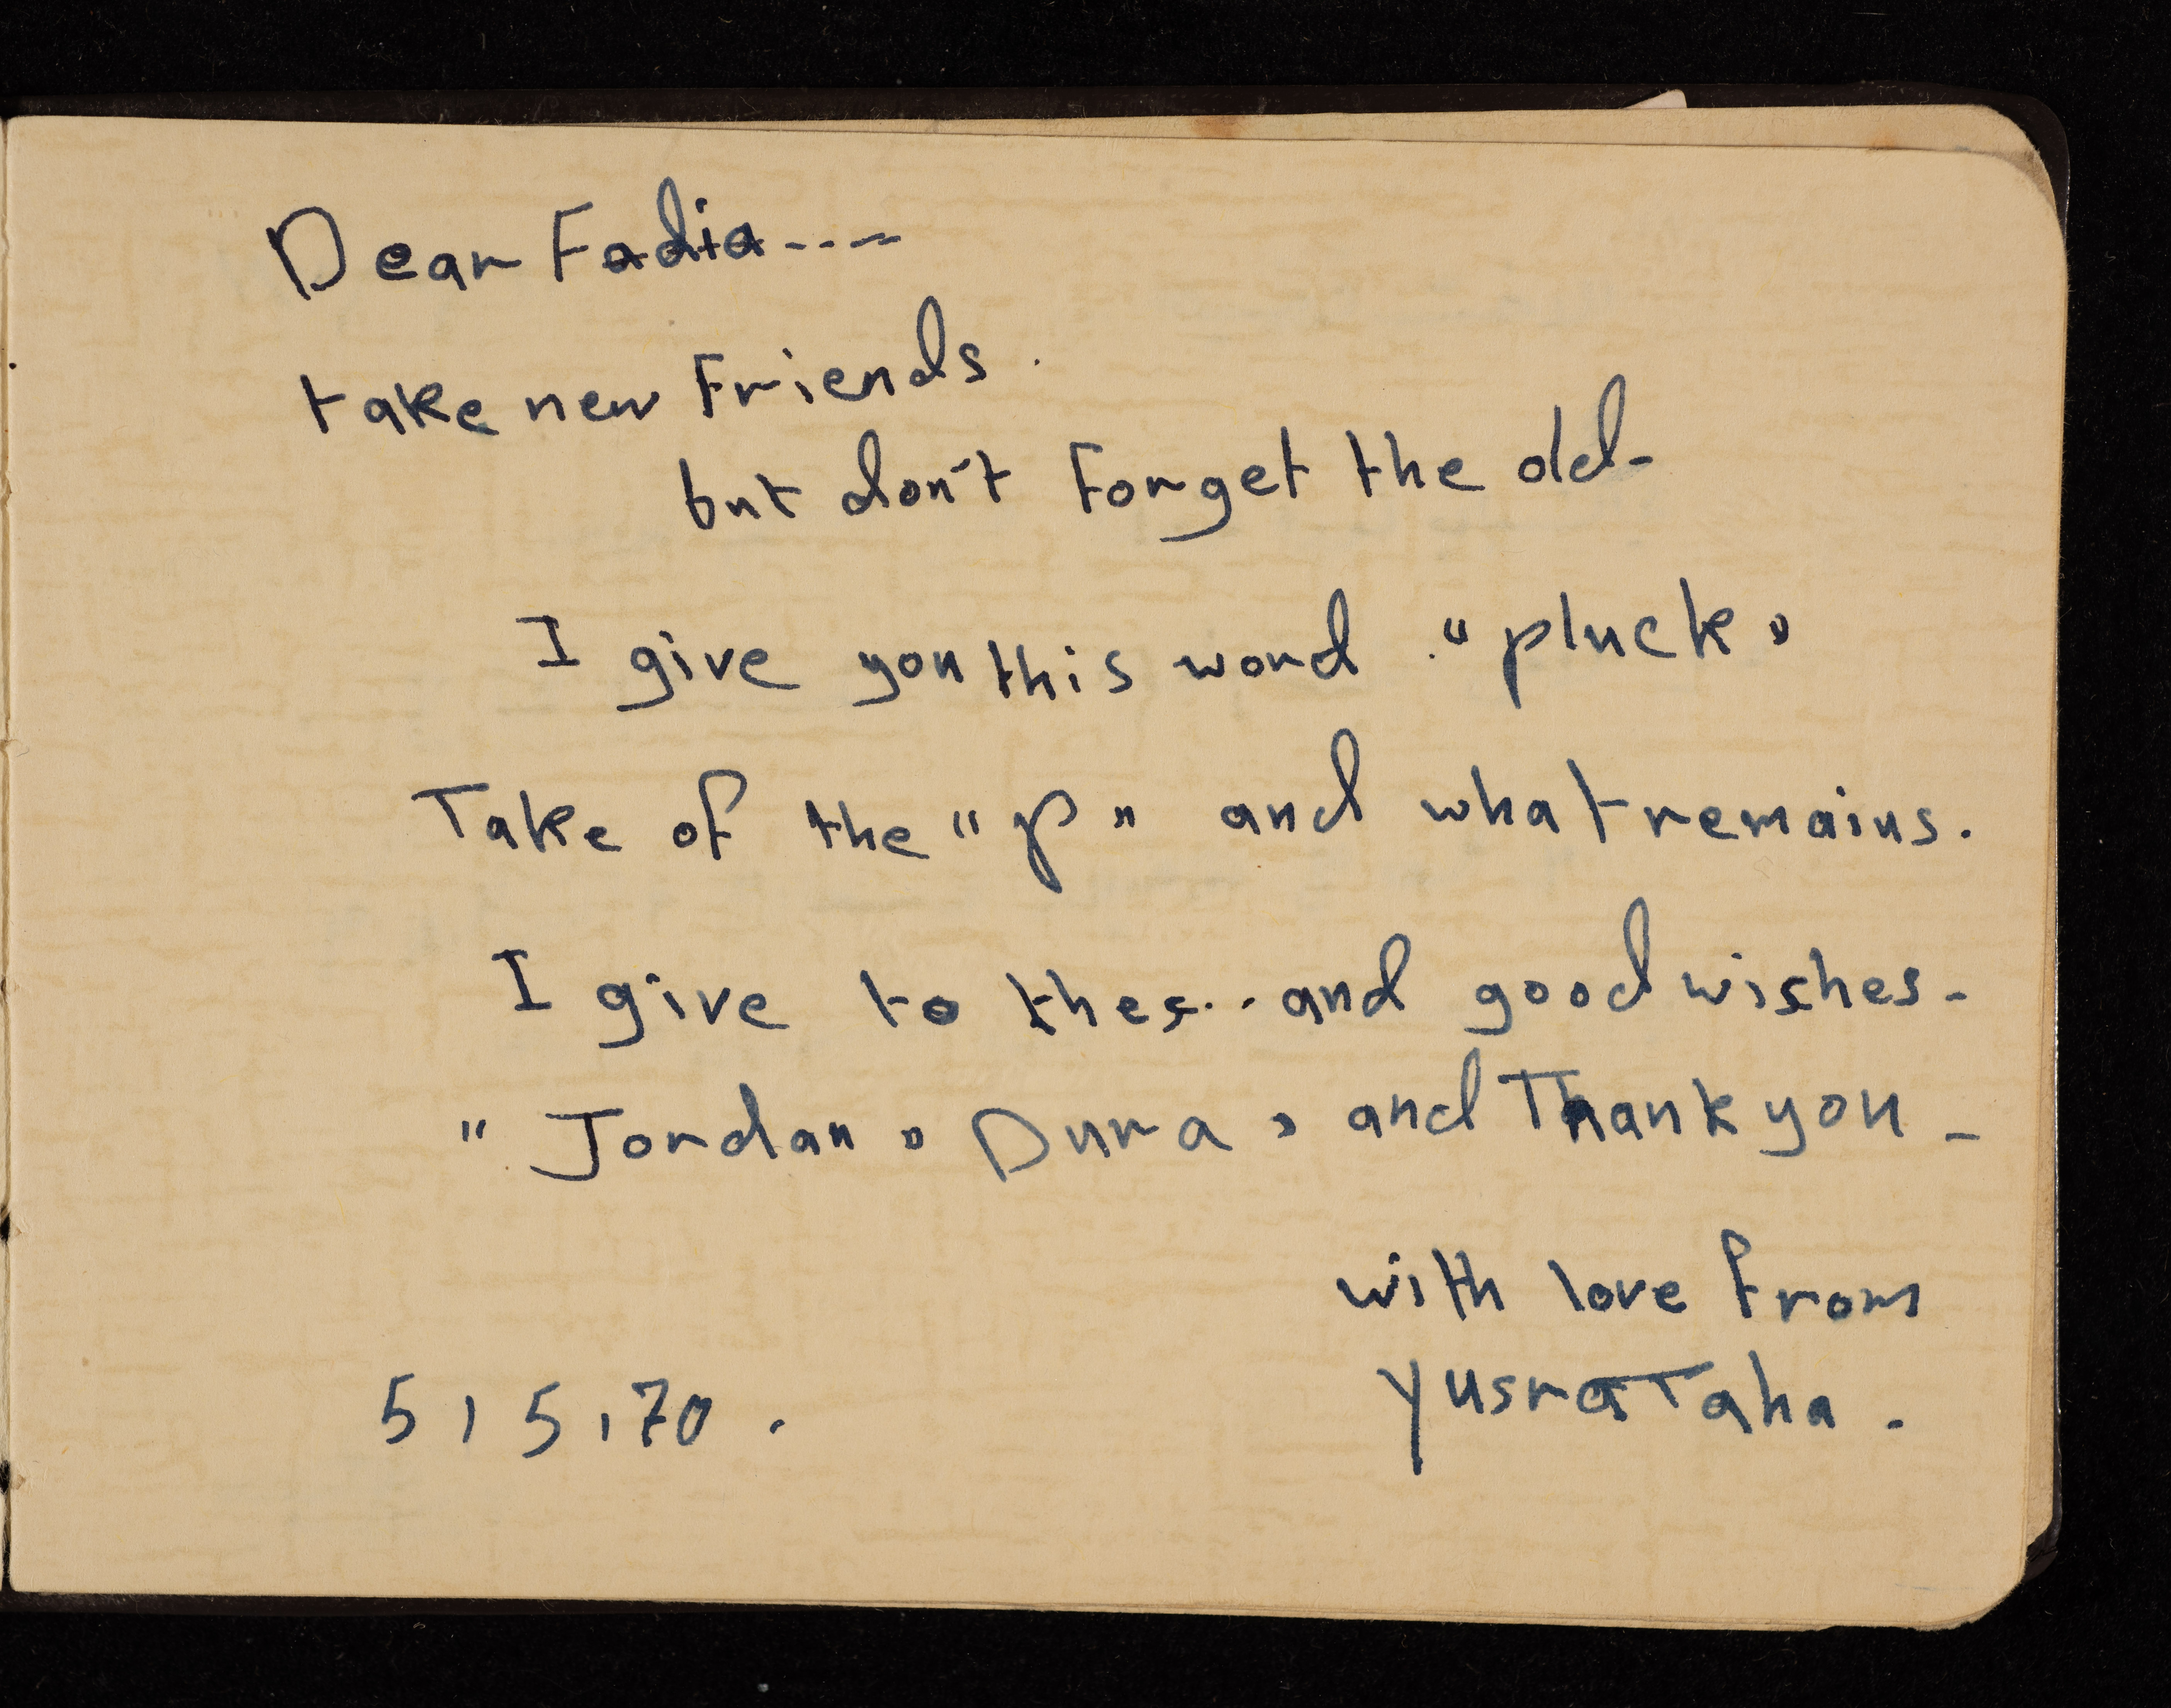 Dear Fadia----
take new Friends.
but don't Forget the old-
I give you this word "pluck"
Take of the "p" and what remains.
I give to thee... and good wishes-
"Jordan" Dura, and Thank you-
with love From
Yusra Taha.
5,5,70.